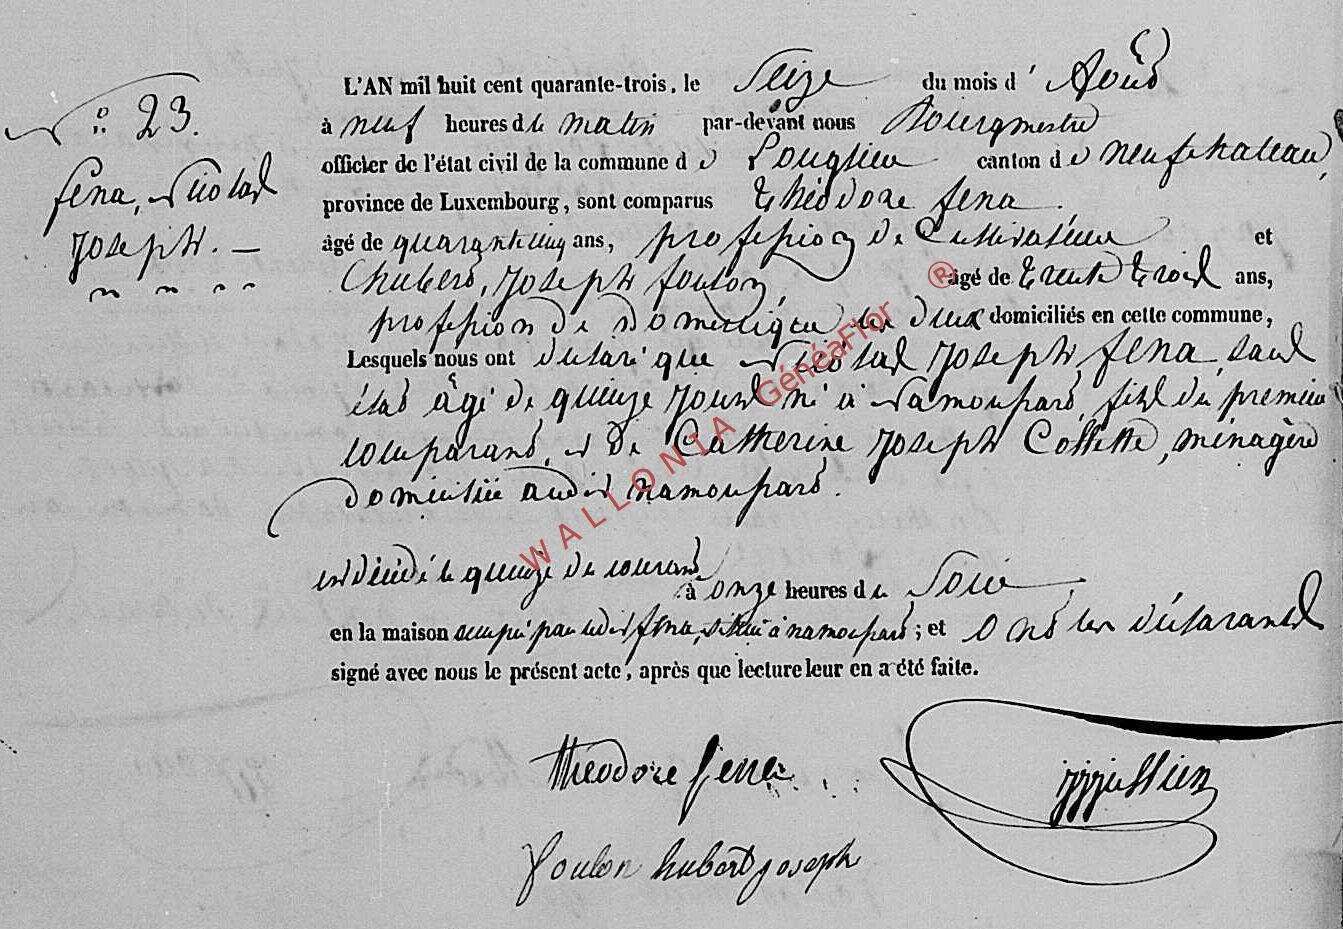 N° 23.
fena, Nicolas
Joseph. —
L'AN mil huit cent quarante-trois, le Seize du mois d' Août
à neuf heures du matin par-devant nous Bourgmestre
officier de l'état civil de la commune de Longlier canton de neufchateau,
province de Luxembourg, sont comparus théodore fena.
âgé de quarante cinq ans, profession de Cultivateur et
hubert, Joseph foulon, âgé de trente trois ans,
profession de domestique les deux domiciliés en cette commune,
Lesquels nous ont déclaré que Nicolas Joseph, fena, sans
état âgé de quinze jours né à Namoussart, fils du premier
comparant, et de Catherine Joseph Collette, ménagère
domiciliée audit namoussart.
est décédé le quinze du courant à onze heures du Soir
en la maison occupée par ledit fena, située à namoussart; et ont les déclarants
signé avec nous le présent acte, après que lecture leur en a été faite.
théodore fena
foulon hubert joseph
WALLONIA GénéaFlor ®